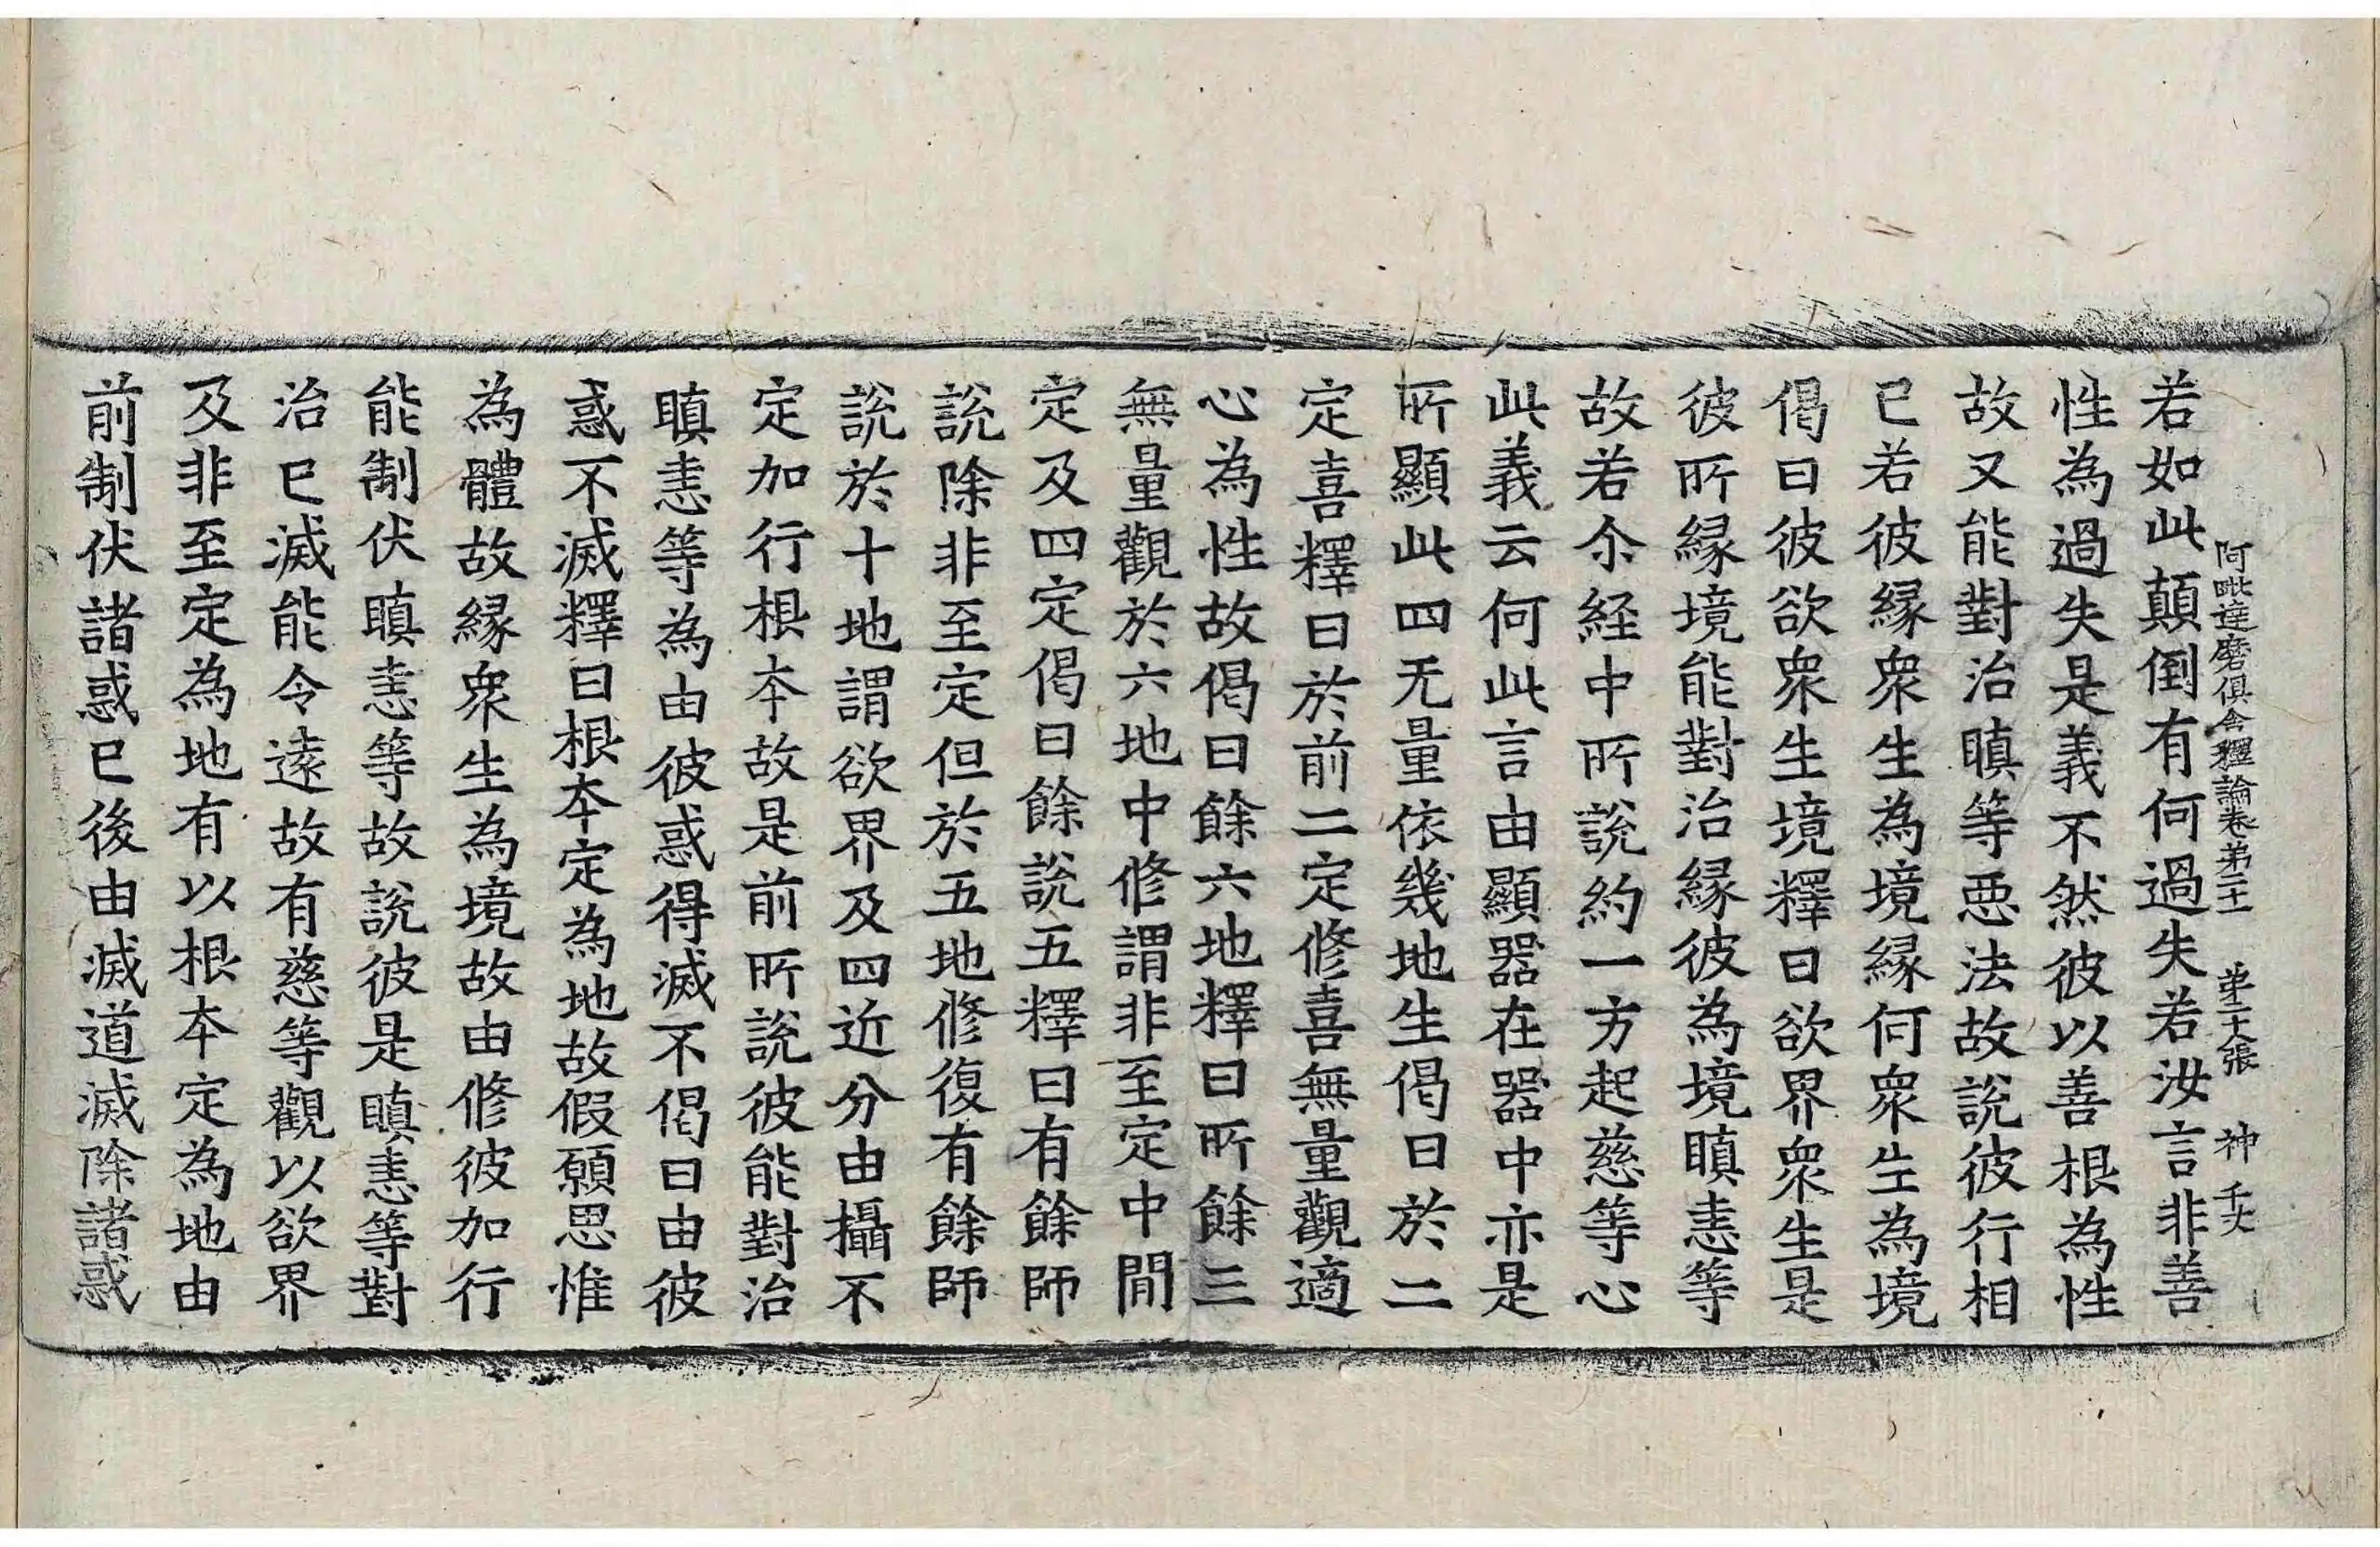 阿毗達磨俱舍釋論卷第二十一 第十六張 神 千大
若如此顛倒有何過失若汝言非善
性為過失是義不然彼以善根為性
故又能對治瞋等惡法故說彼行相
已若彼緣衆生為境緣何衆生為境
偈曰彼欲衆生境釋曰欲界衆生是
彼所緣境能對治緣彼為境瞋恚等
故若尒経中所說約一方起慈等心
此義云何此言由顯器在器中亦是
所顯此四无量依幾地生偈曰於二
定喜釋曰於前二定修喜無量觀適
心為性故偈曰餘六地釋曰所餘三
無量觀於六地中修謂非至定中間
定及四定偈曰餘說五釋曰有餘師
說除非至定但於五地修復有餘師
說於十地謂欲界及四近分由攝不
定加行根本故是前所說彼能對治
瞋恚等為由彼惑得滅不偈曰由彼
惑不滅釋曰根本定為地故假願思惟
為體故緣衆生為境故由修彼加行
能制伏瞋恚等故說彼是瞋恚等對
治已滅能令遠故有慈等觀以欲界
及非至定為地有以根本定為地由
前制伏諸惑已後由滅道滅除諸惑